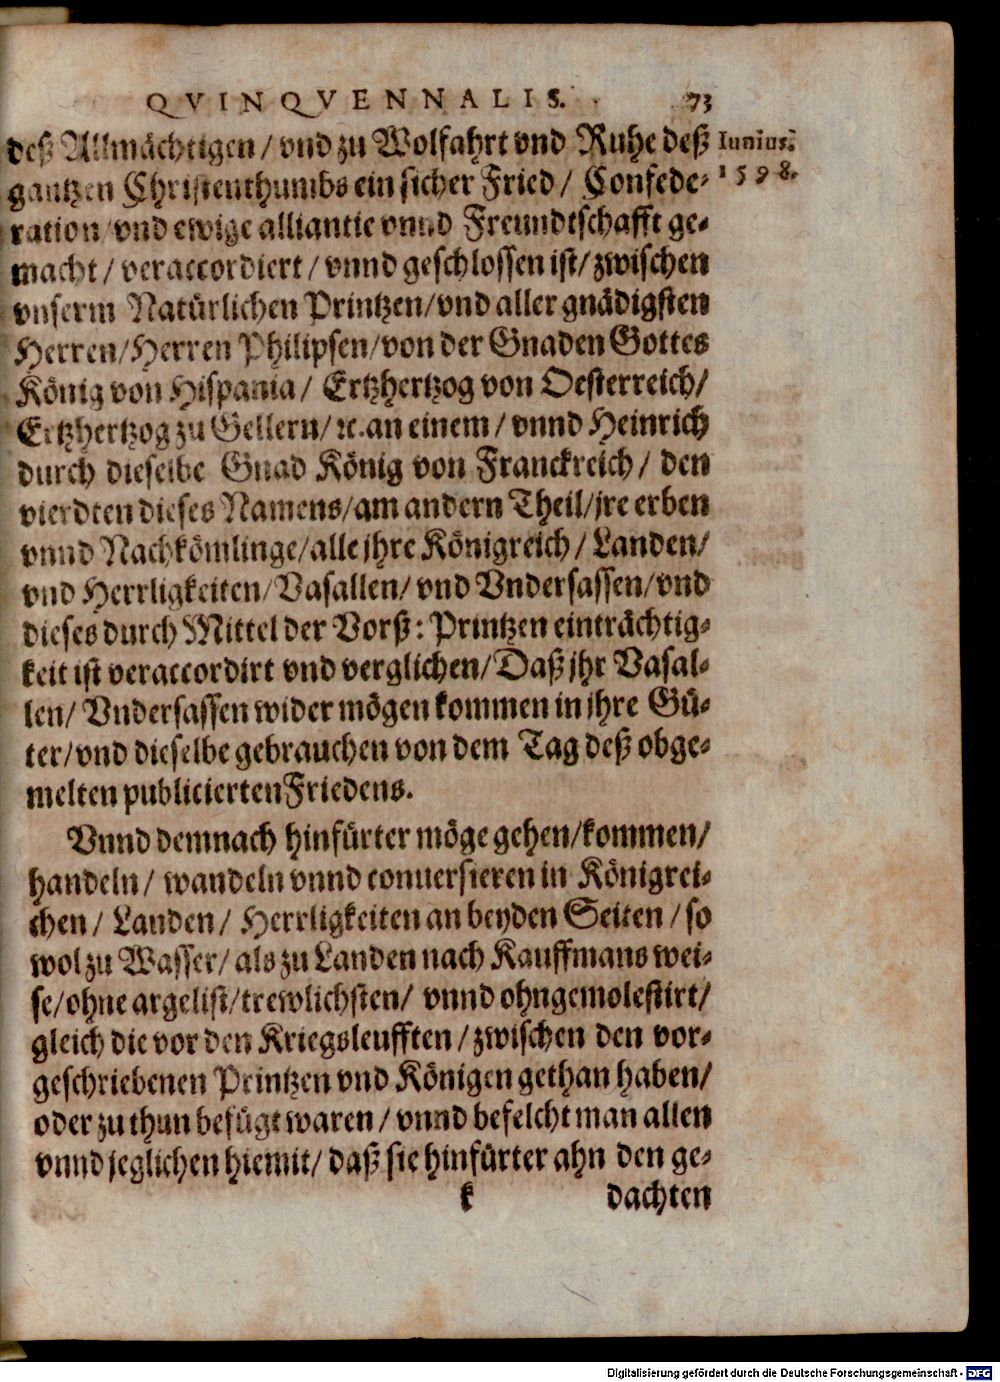 QVINQVENNALIS. 73
deß Allmächtigen / vnd zu Wolfahrt vnd Ruhe deß
Iunius.
gantzen Christenthumbs ein sicher Fried / Confede-
1598.
ration vnd ewige alliantie vnnd Freundtschafft ge-
macht / veraccordiert / vnnd geschlossen ist / zwischen
vnserm Natürlichen Printzen / vnd aller gnädigsten
Herren / Herren Philipsen / von der Gnaden Gottes
König von Hispania / Ertzhertzog von Oesterreich /
Ertzhertzog zu Gellern / ꝛc. an einem / vnnd Heinrich
durch dieselbe Gnad König von Franckreich / den
vierdten dieses Namens / am andern Theil / jre erben
vnnd Nachkömlinge / alle jhre Königreich / Landen /
vnd Herrligkeiten / Vasallen / vnd Vndersassen / vnd
dieses durch Mittel der Vorß: Printzen einträchtig-
keit ist veraccordirt vnd verglichen / Daß jhr Vasal-
len / Vndersassen wider mögen kommen in jhre Gü-
ter / vnd dieselbe gebrauchen von dem Tag deß obge-
melten publicierten Friedens.
Vnnd demnach hinfürter möge gehen / kommen /
handeln / wandeln vnnd conuersieren in Königrei-
chen / Landen / Herrligkeiten an beyden Seiten / so
wol zu Wasser / als zu Landen nach Kauffmans wei-
se / ohne argelist / trewlichsten / vnnd ohngemolestirt /
gleich die vor den Kriegsleufften / zwischen den vor-
geschriebenen Printzen vnd Königen gethan haben /
oder zu thun befügt waren / vnnd befelcht man allen
vnnd jeglichen hiemit / daß sie hinfürter ahn den ge-
k dachten
Digitalisierung gefördert durch die Deutsche Forschungsgemeinschaft - DFG